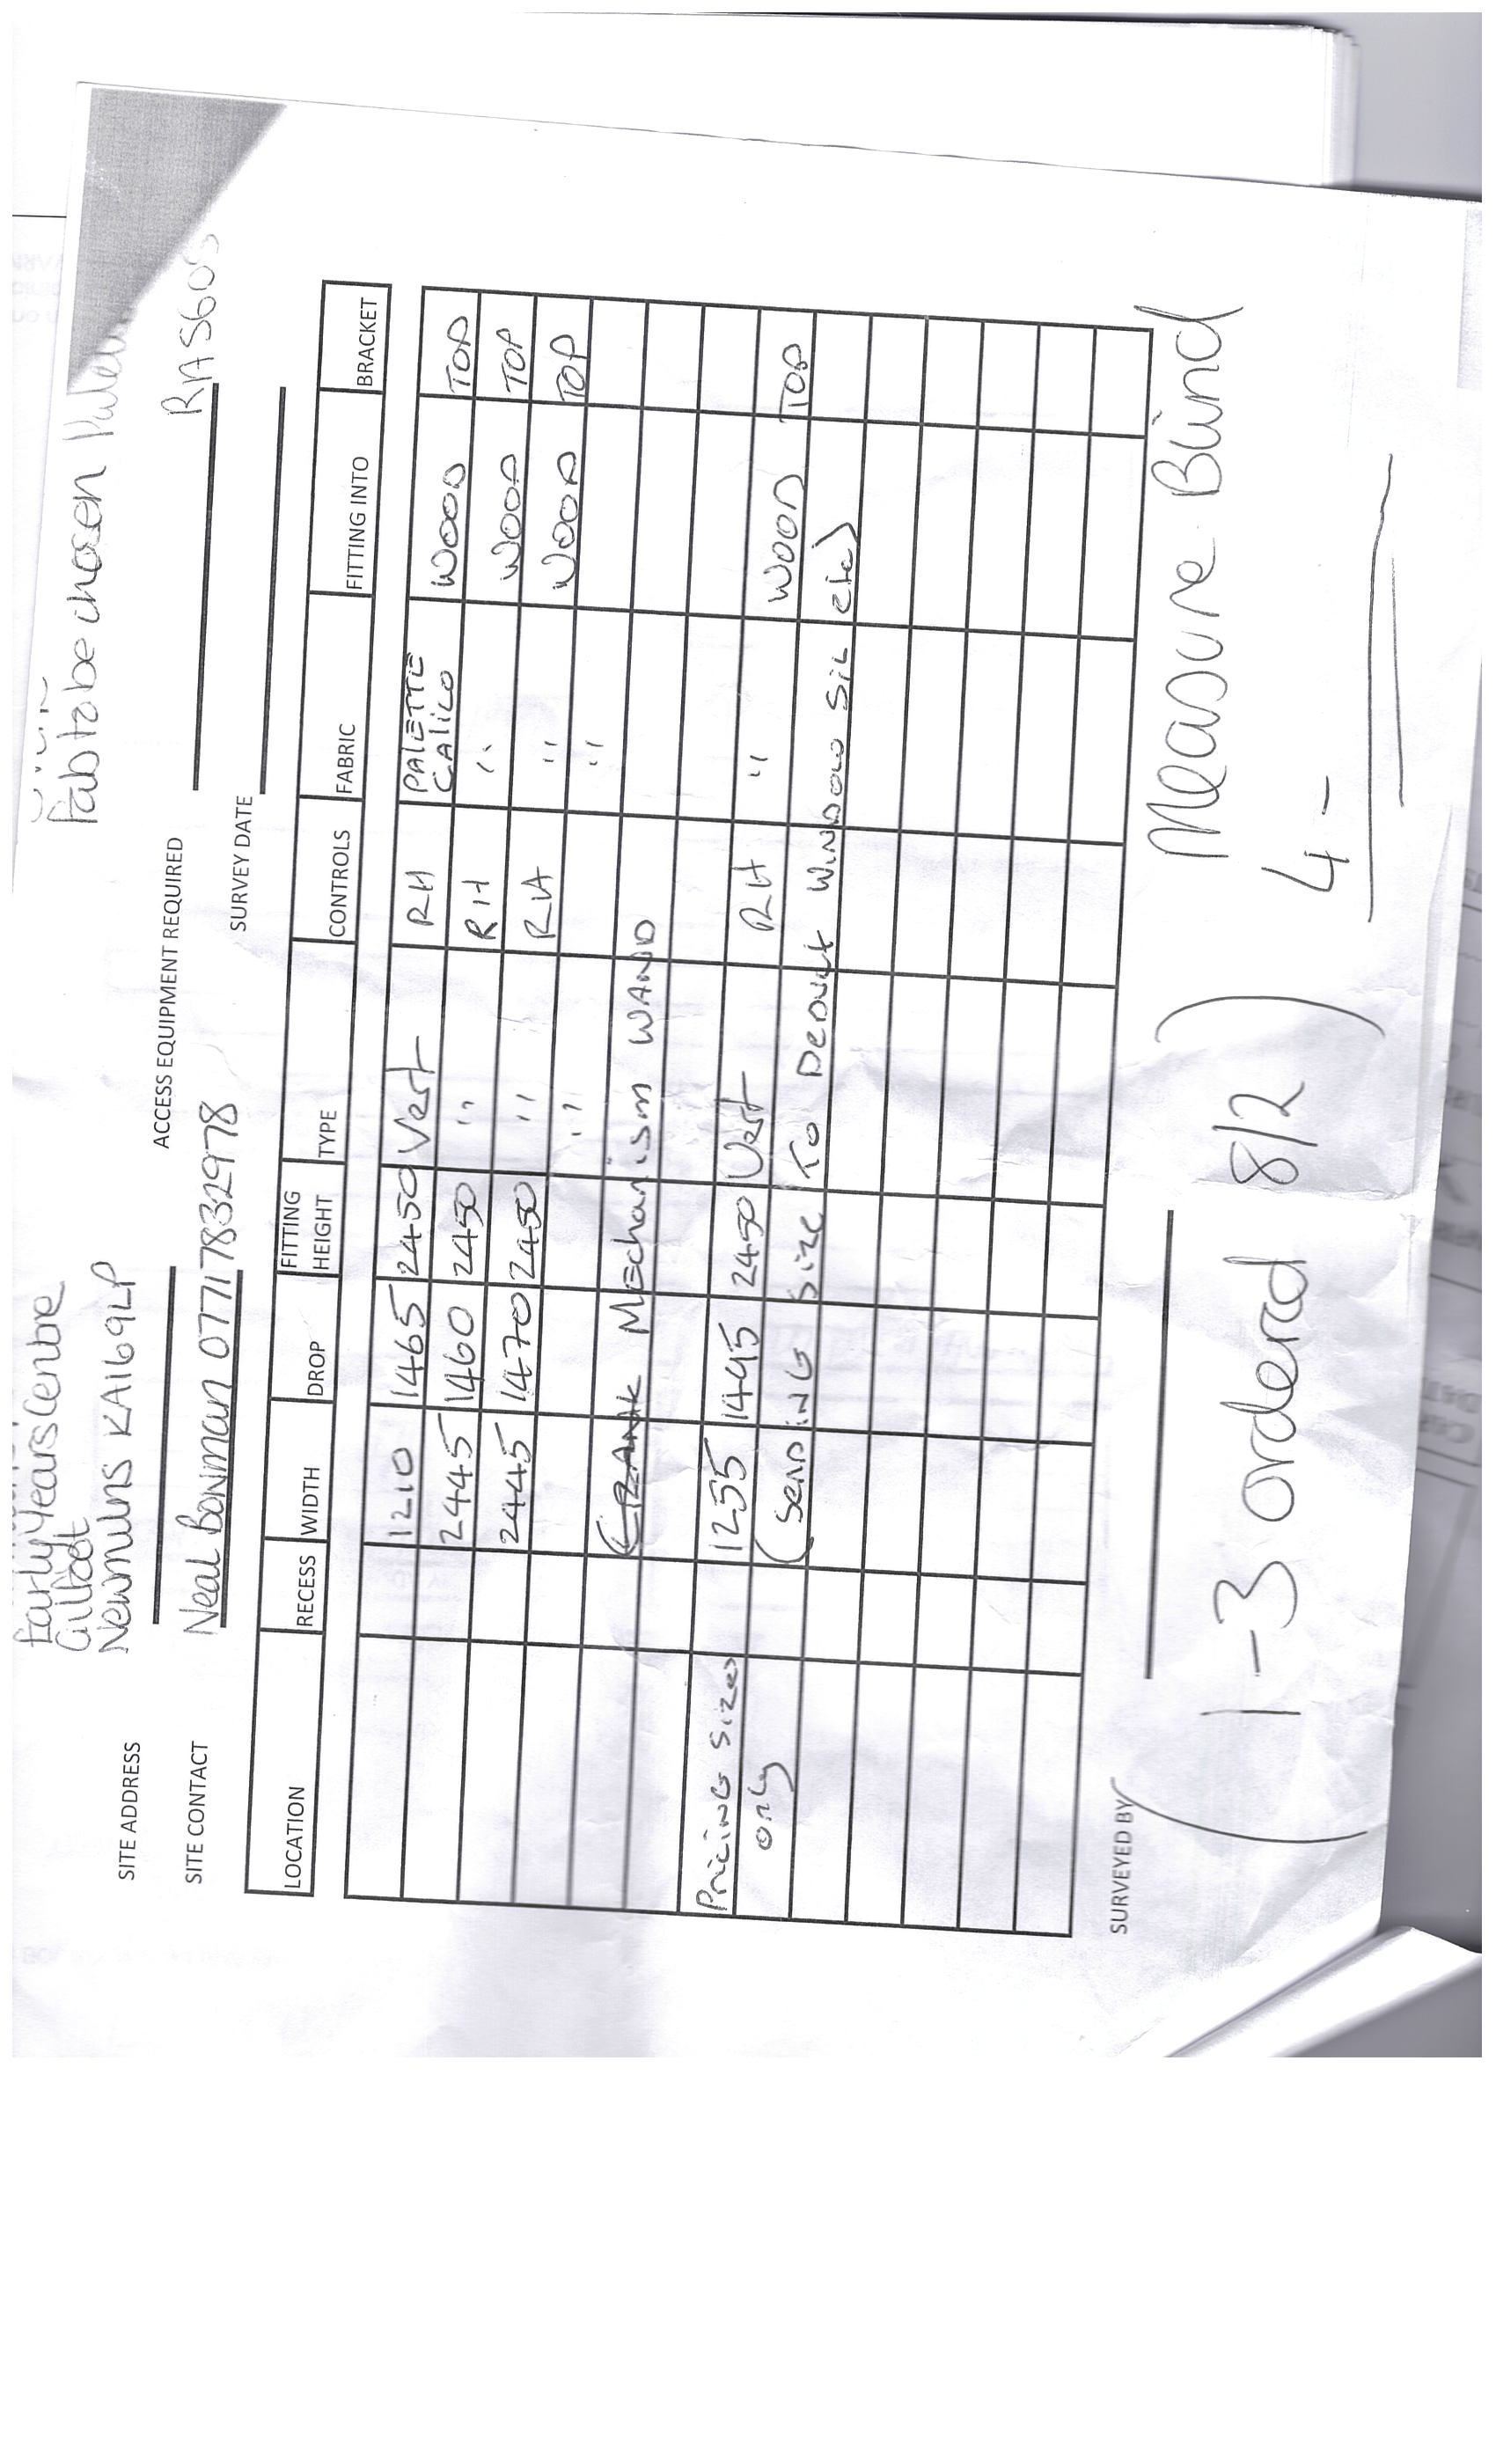 Fab to be chosen
Early Years Centre
Gilfoot
Newmilns KA16 9LP
RAS605
SITE ADDRESS
ACCESS EQUIPMENT REQUIRED
SITE CONTACT Neal Bowman 07717832978
SURVEY DATE
LOCATION RECESS WIDTH DROP FITTING HEIGHT TYPE CONTROLS FABRIC FITTING INTO BRACKET
1210 1465 2450 Vert RH PALETTE CALICO WOOD TOP
2445 1460 2450 " RH " WOOD TOP
2445 1470 2450 " RH " WOOD TOP
" "
Mechanism WAND
Pricing Sizes only 1255 1495 2450 Vert RH " WOOD TOP
(Sending Size To Deduct WINDOW SIL etc)
SURVEYED BY
(1-3 ordered 8/2)
Measure Blind
4 -